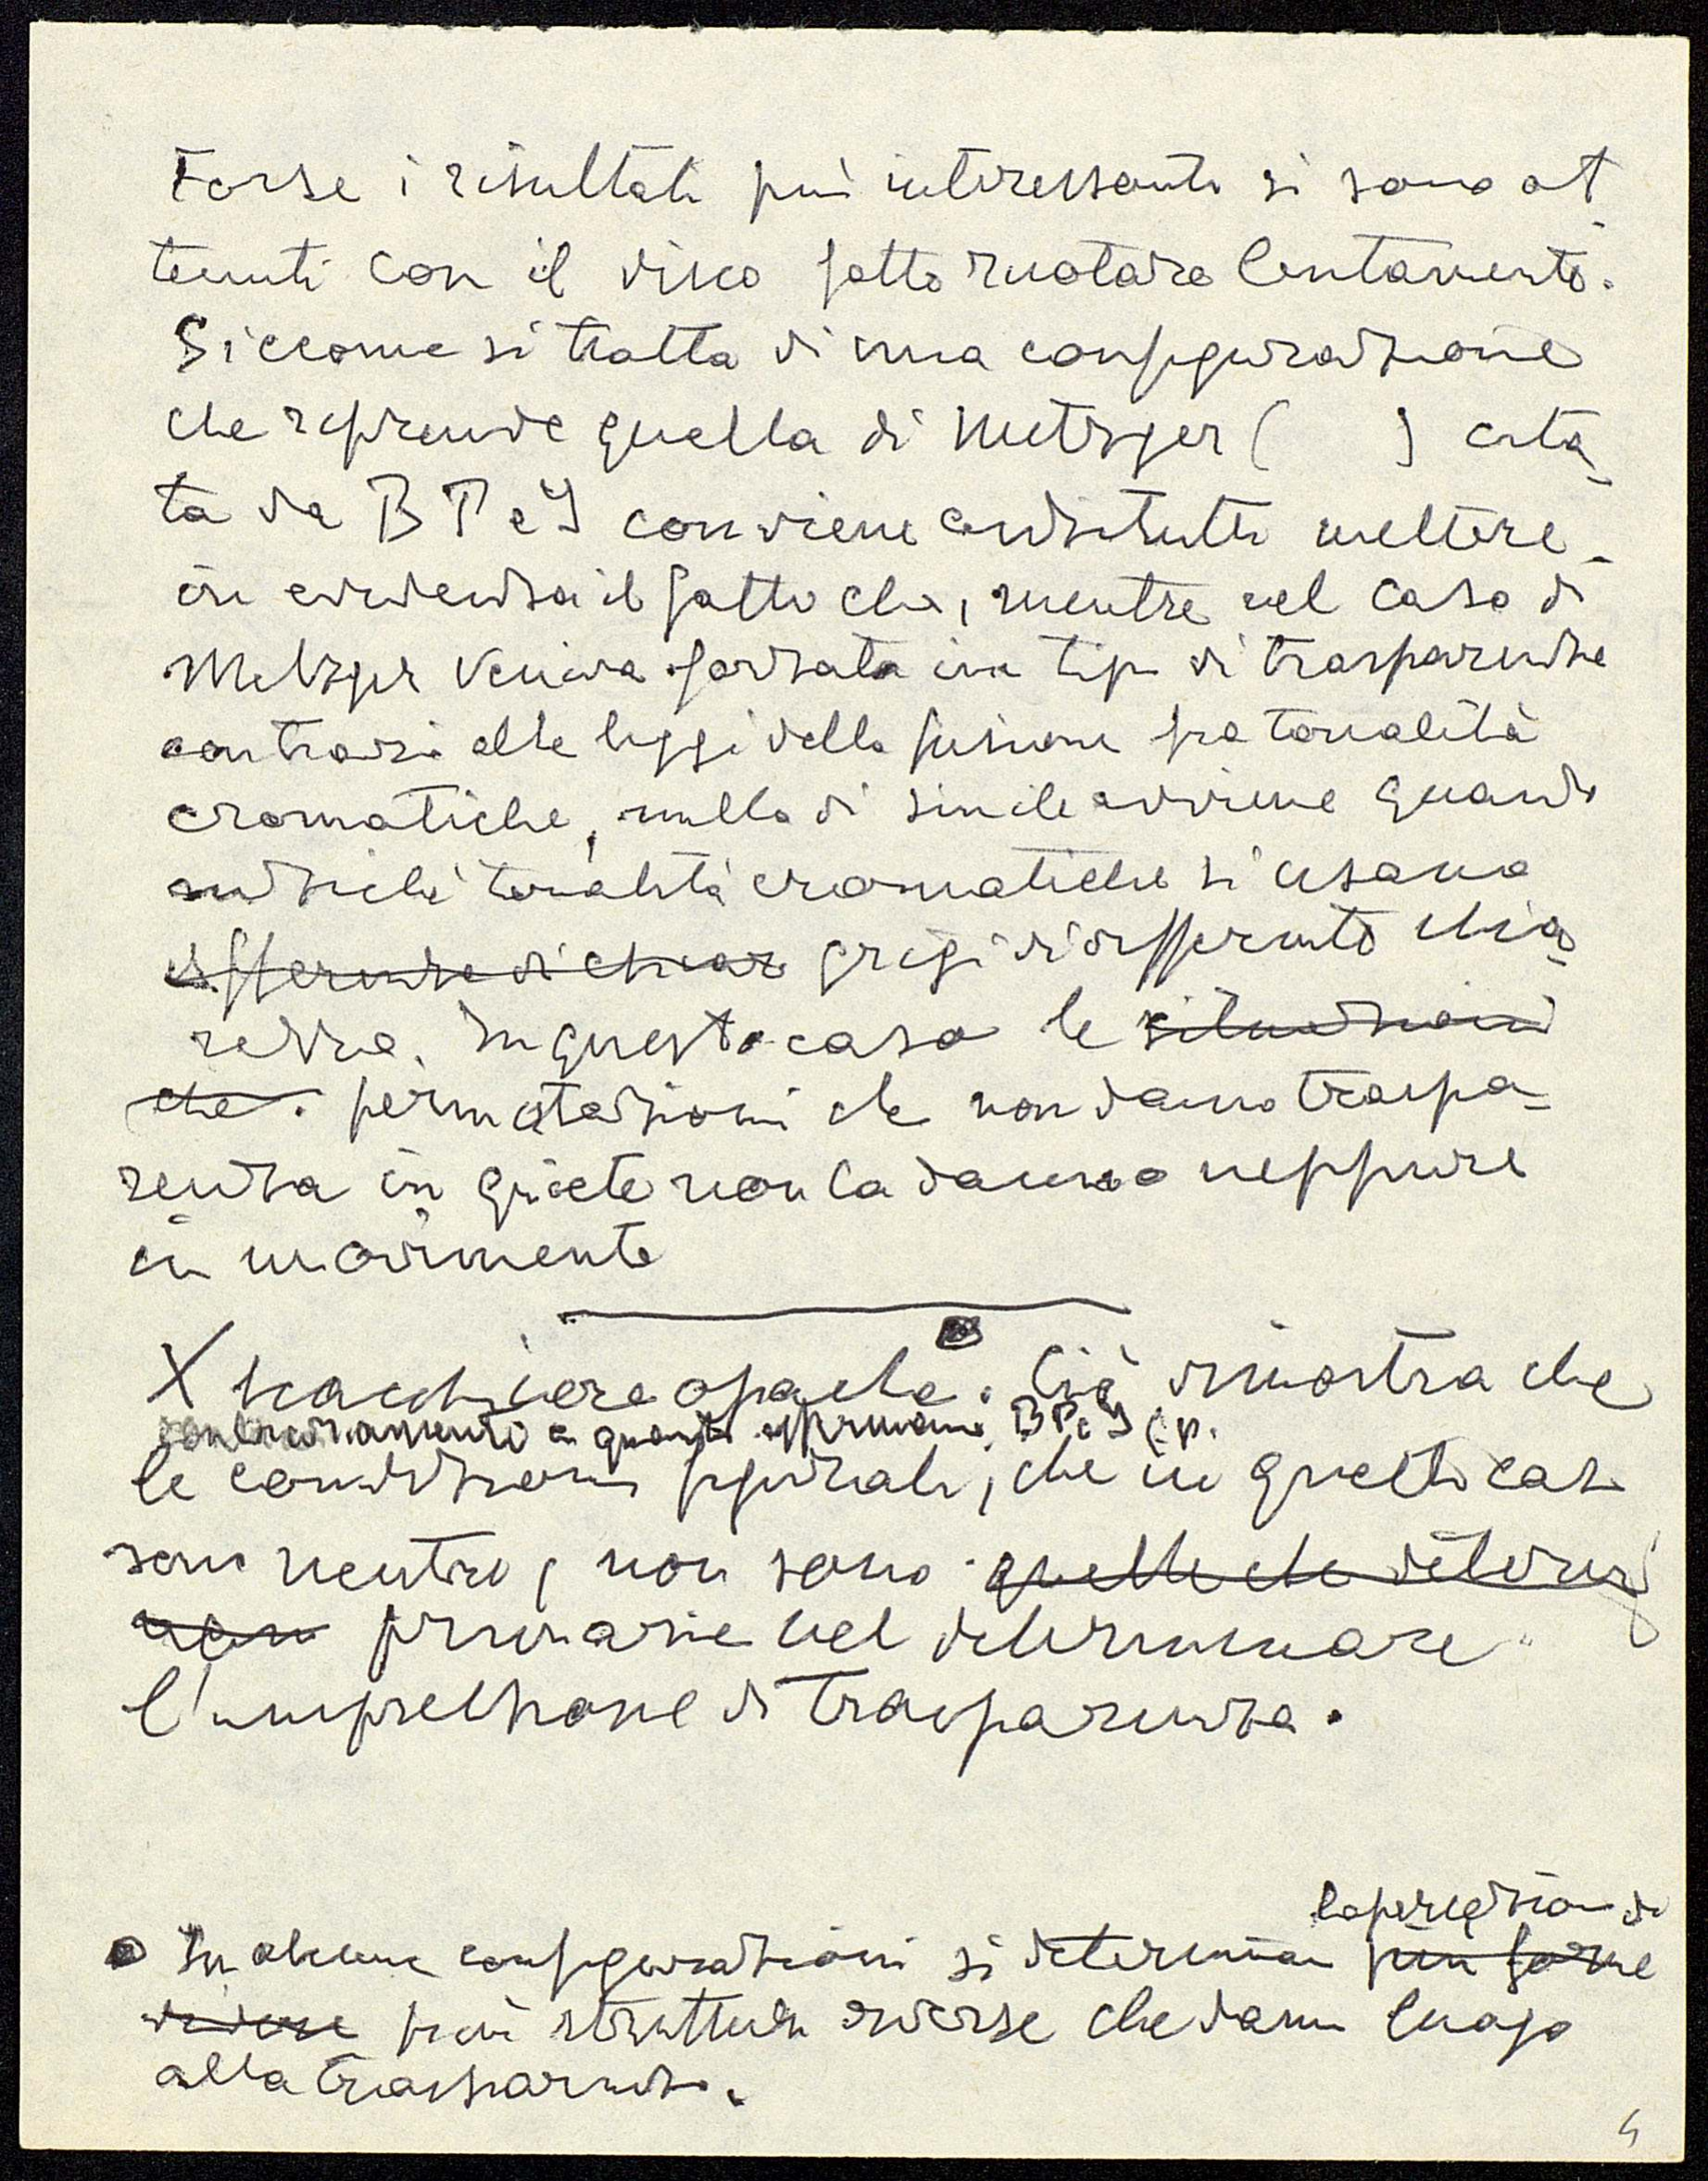 Forse i risultati più interessanti si sono ot
tenuti con il disco fatto ruotare lentamente.
Siccome si tratta di una configurazione
che riprende quella di Metzger ( ) cita
ta da B P e J conviene anzitutto mettere
in evidenza il fatto che, mentre nel caso di
Metzger veniva forzata un tipo di trasparenza
contrario alle leggi della fusione fra tonalità
cromatiche, nulla di simile avviene quando
anziché tonalità cromatiche si usano
differenze di chiar grigi di differente chia
rezza. In questo caso le situazioni
che permutazioni che non danno traspa-
renza in quiete non la danno neppure
in movimento
X opache. Ciò dimostra che
contrariamente a quanto affermano B P e J (p.
le condizioni figurali, che in questi casi
sono neutre, non sono quelle che determi
nano primarie nel determinare
l'impressione di trasparenza.
la percezione di
In alcune configurazioni si determina più forme
diverse più strutture diverse che danno luogo
alla trasparenza.